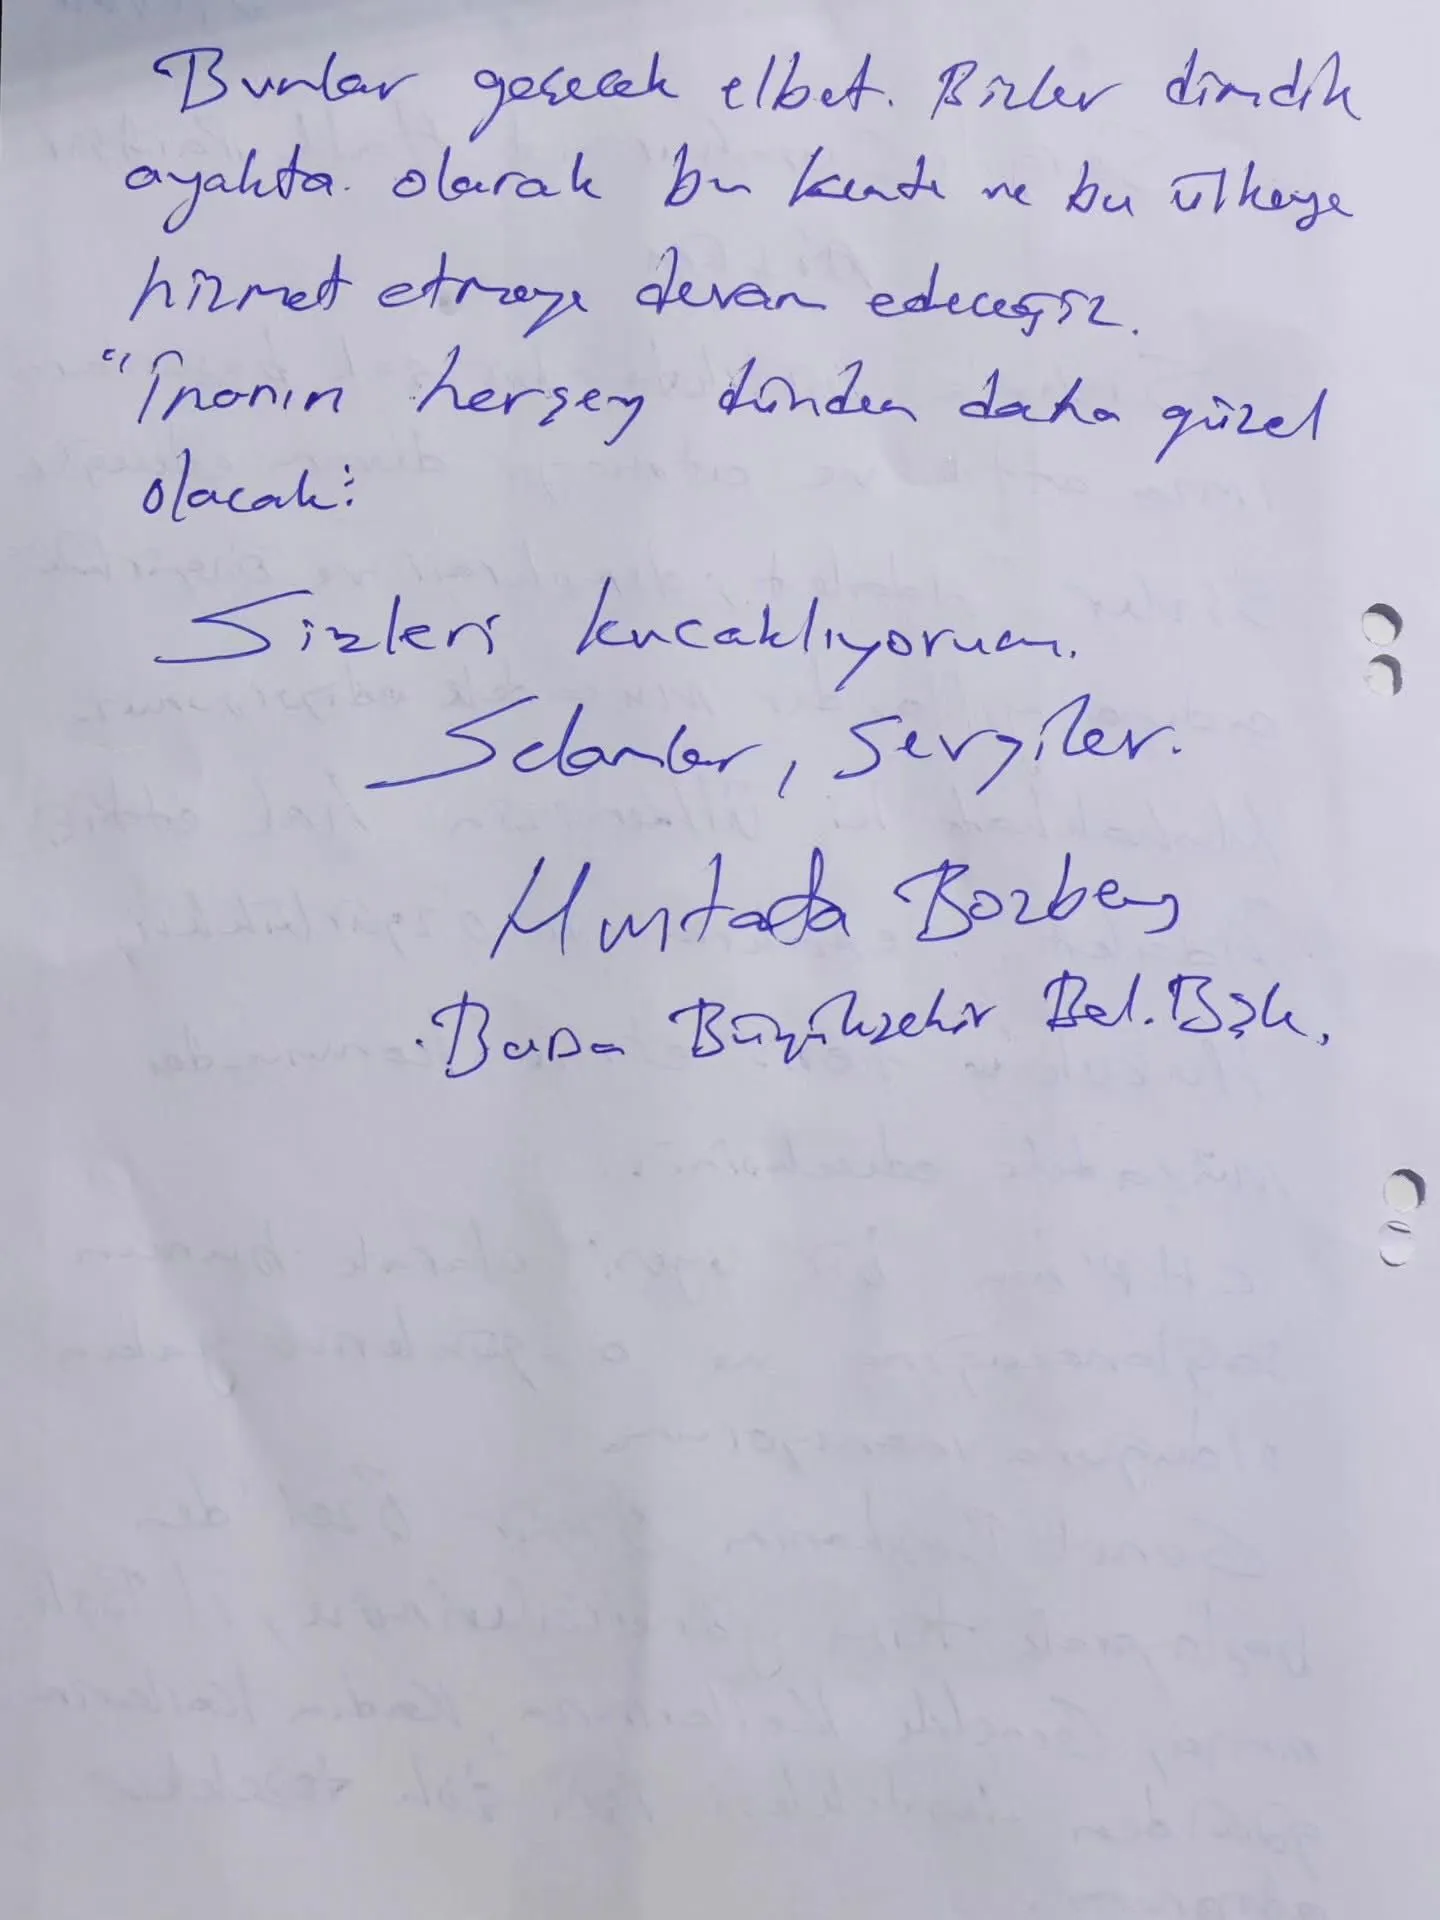 Bunlar geçecek elbet. Bizler dimdik
ayakta olarak bu kente ve bu ülkeye
hizmet etmeye devam edeceğiz.
"İnanın herşey dünden daha güzel
olacak"
Sizleri kucaklıyorum.
Selamlar, sevgiler.
Mustafa Bozbey
Bursa Büyükşehir Bel. Bşk.